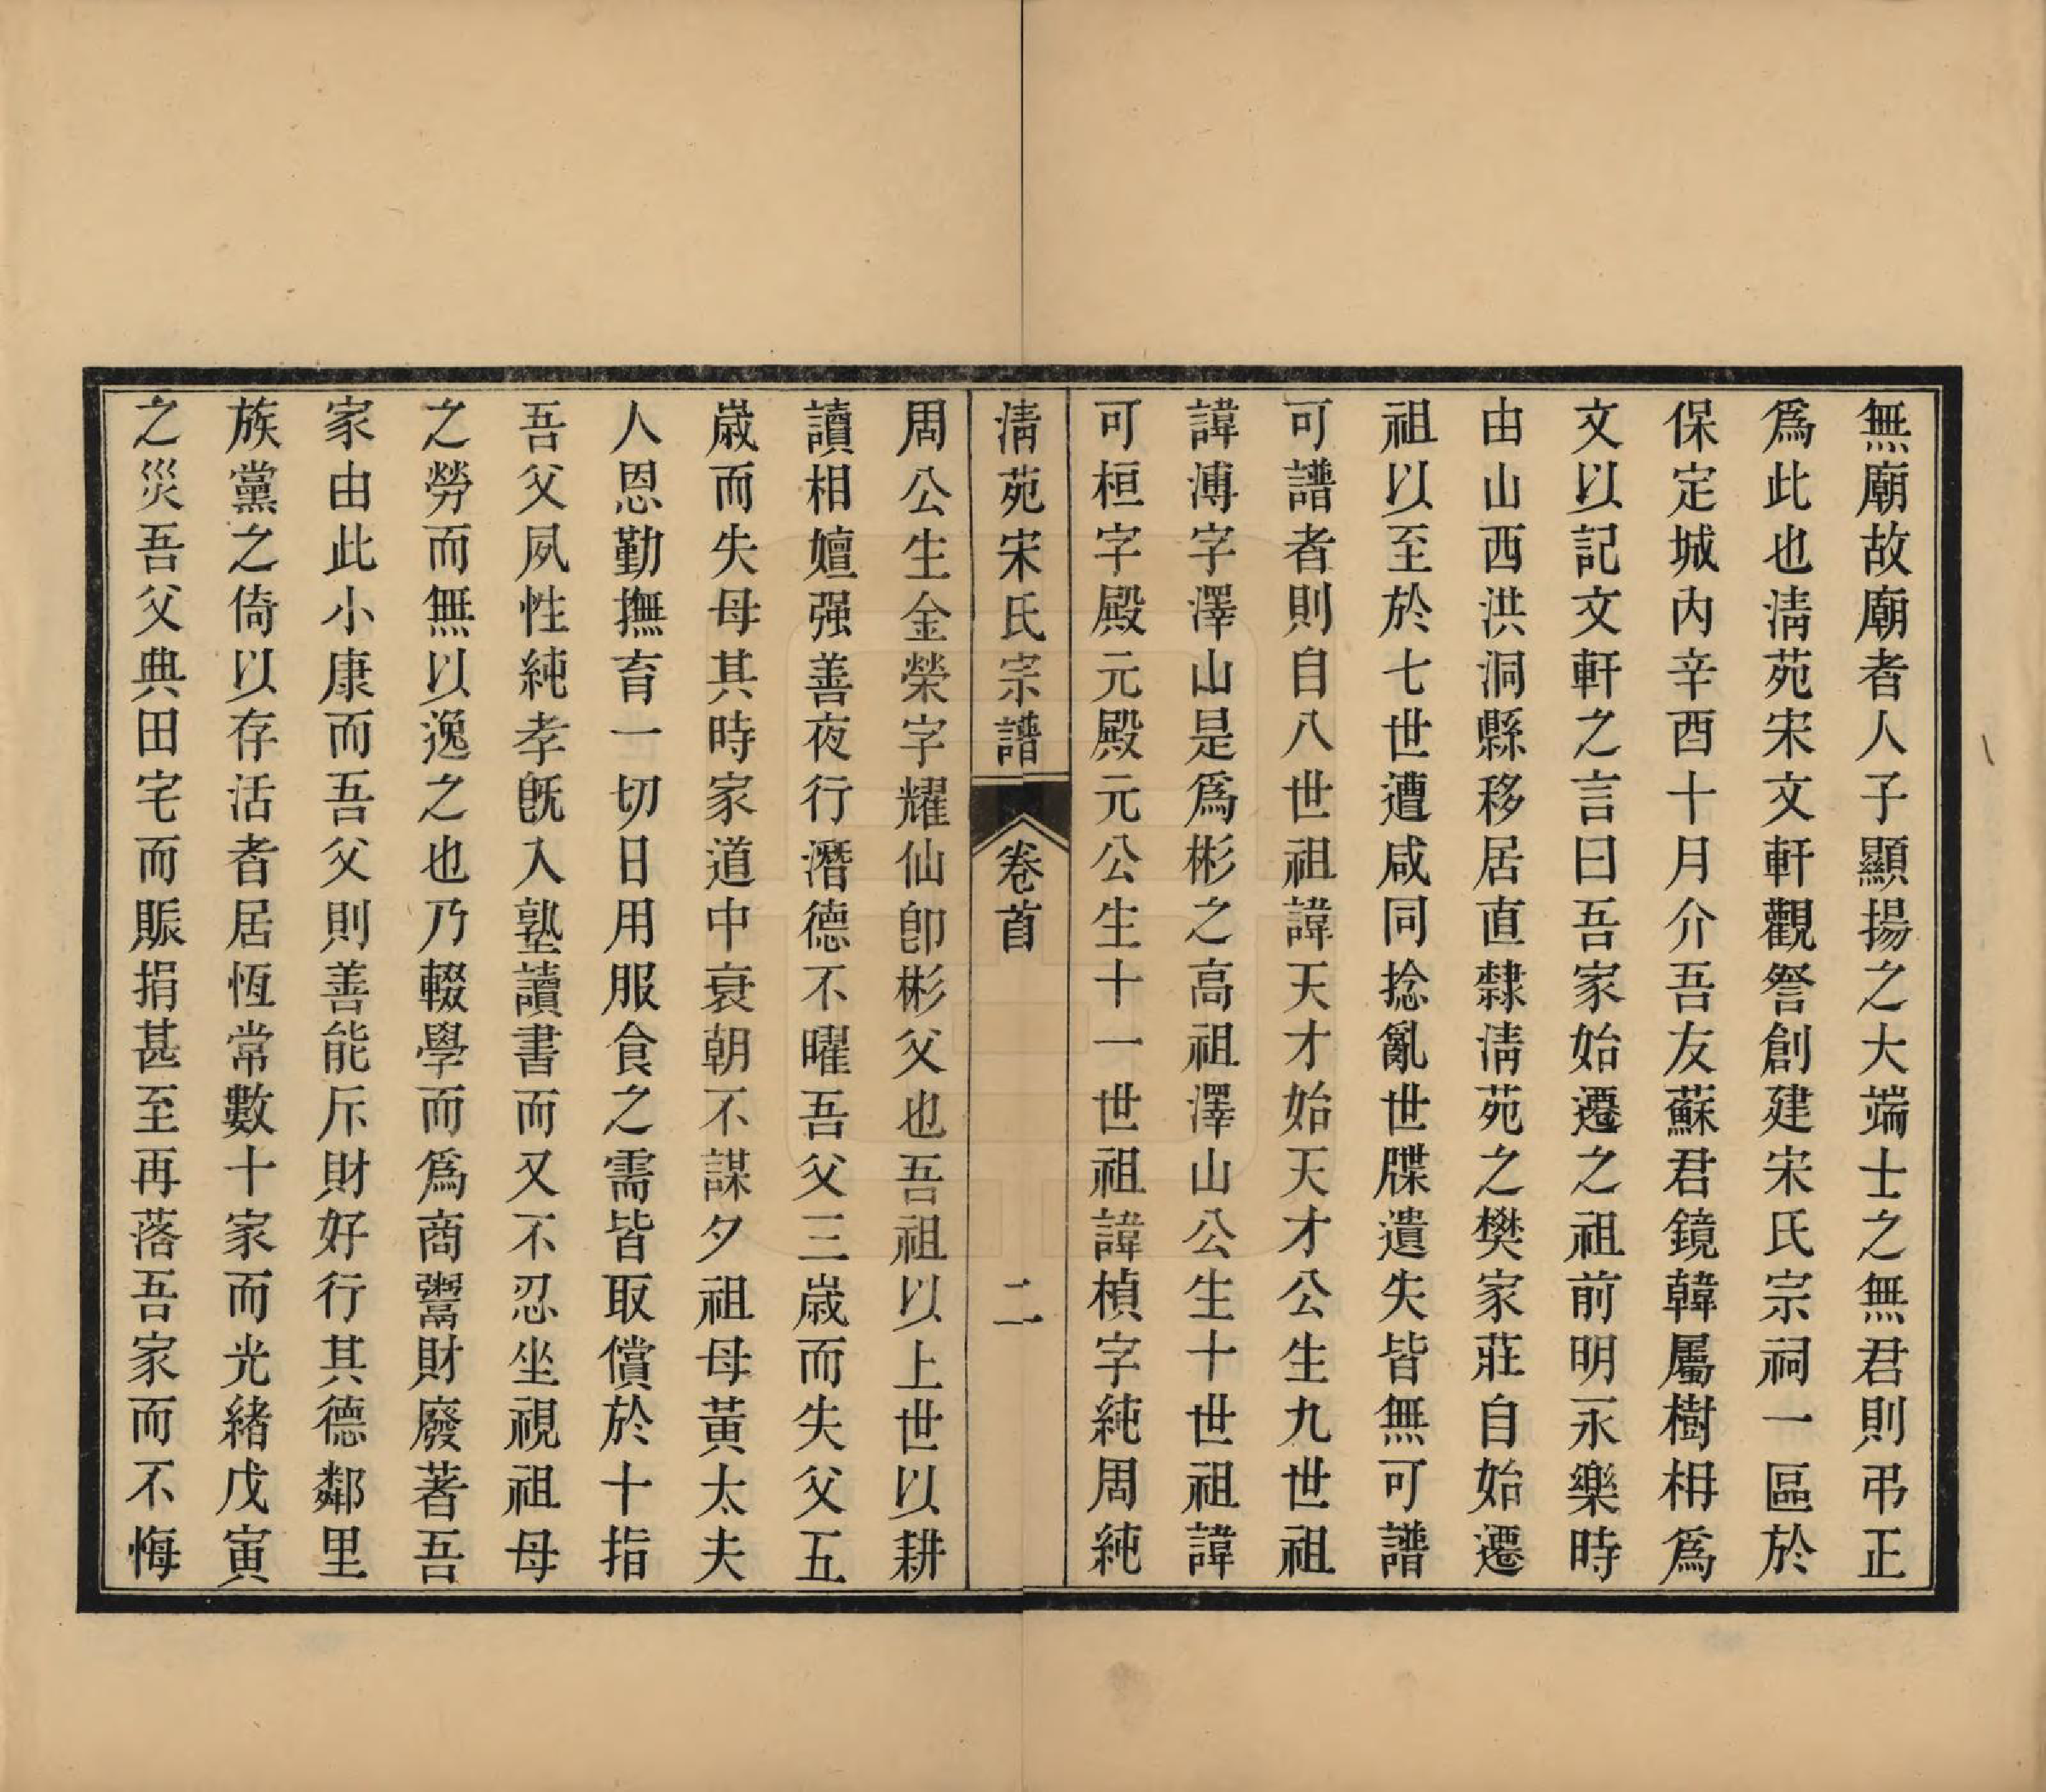 無廟故廟者人子顯揚之大端士之無君則弔正
爲此也淸苑宋文軒觀詧創建宋氏宗祠一區於
保定城內辛酉十月介吾友蘇君鏡韓屬樹枏爲
文以記文軒之言曰吾家始遷之祖前明永樂時
由山西洪洞縣移居直隸淸苑之樊家莊自始遷
祖以至於七世遭咸同捻亂世牒遺失皆無可譜
可譜者則自八世祖諱天才始天才公生九世祖
諱溥字澤山是爲彬之高祖澤山公生十世祖諱
可桓字殿元殿元公生十一世祖諱楨字純周純
淸苑宋氏宗譜 卷首 二
周公生金榮字耀仙卽彬父也吾祖以上世以耕
讀相嬗强善夜行潛德不曜吾父三歲而失父五
歲而失母其時家道中衰朝不謀夕祖母黃太夫
人恩勤撫育一切日用服食之需皆取償於十指
吾父夙性純孝旣入塾讀書而又不忍坐視祖母
之勞而無以逸之也乃輟學而爲商鬻財廢著吾
家由此小康而吾父則善能斥財好行其德鄰里
族黨之倚以存活者居恆常數十家而光緖戊寅
之災吾父典田宅而賑捐甚至再落吾家而不悔